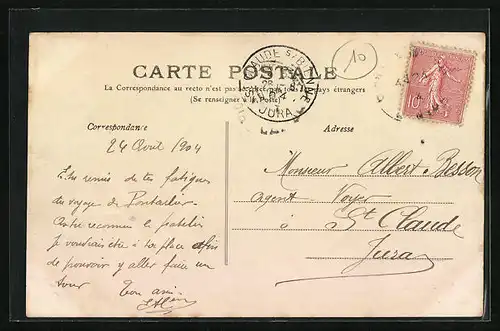 10
CARTE POSTALE
La Correspondance au recto n'est pas acceptée par tous les pays étrangers
(Se renseigner à la Poste)
ST CLAUDE S/BIENNE
JURA
10c
Correspondance
Adresse
24 Août 1904
Es-tu remis de tes fatigues
du voyage de Pontarlier
je voudrais être à ta place afin
de pouvoir y aller faire un
tour Ton ami
Monsieur Albert Besson
Agent Voyer
à St Claude
Jura